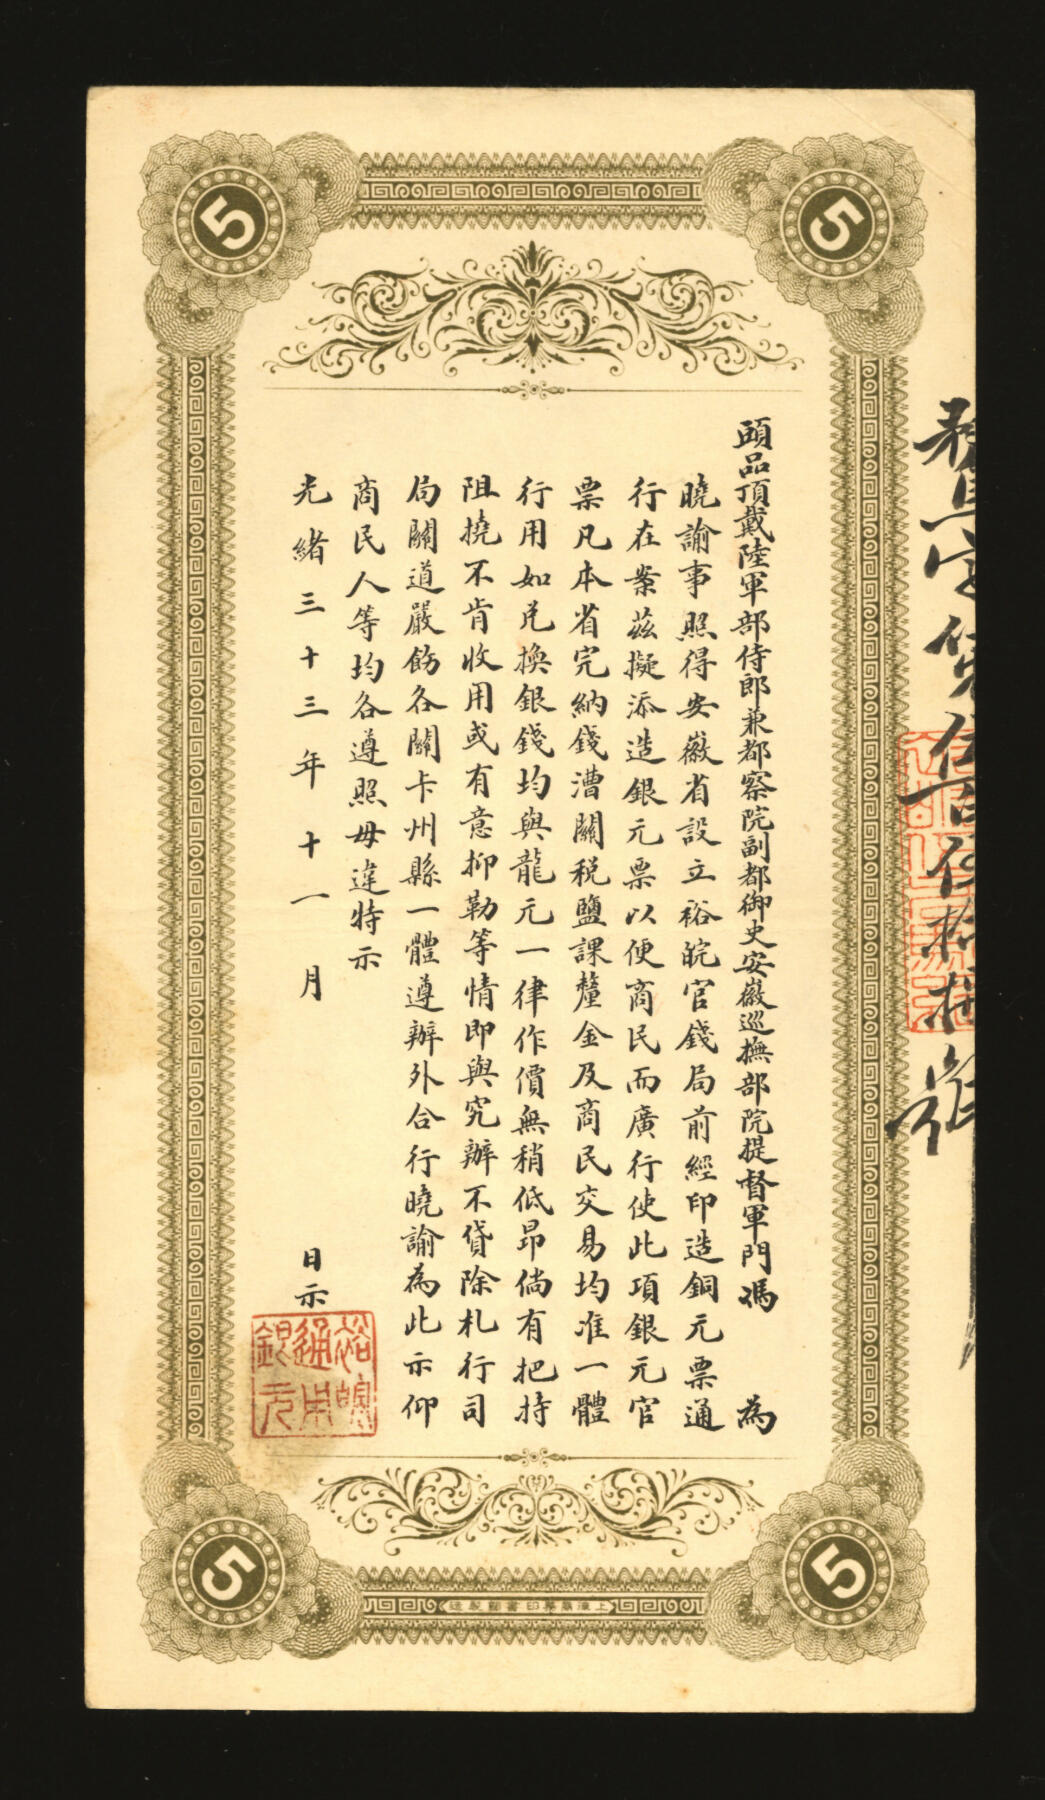 頭品頂戴陸軍部侍郎兼都察院副都御史安徽巡撫部院提督軍門馮　為
曉諭事照得安徽省設立裕皖官錢局前經印造銅元票通
行在案茲擬添造銀元票以便商民而廣行使此項銀元官
票凡本省完納錢漕關稅鹽課釐金及商民交易均准一體
行用如兌換銀錢均與龍元一律作價無稍低昂倘有把持
阻撓不肯收用或有意抑勒等情即與究辦不貸除札行司
局關道嚴飭各關卡州縣一體遵辦外合行曉諭為此示仰
商民人等均各遵照毋違特示
光緒三十三年十一月　日示
裕皖
通用
銀元
5
5
5
5
上海商務印書館製造